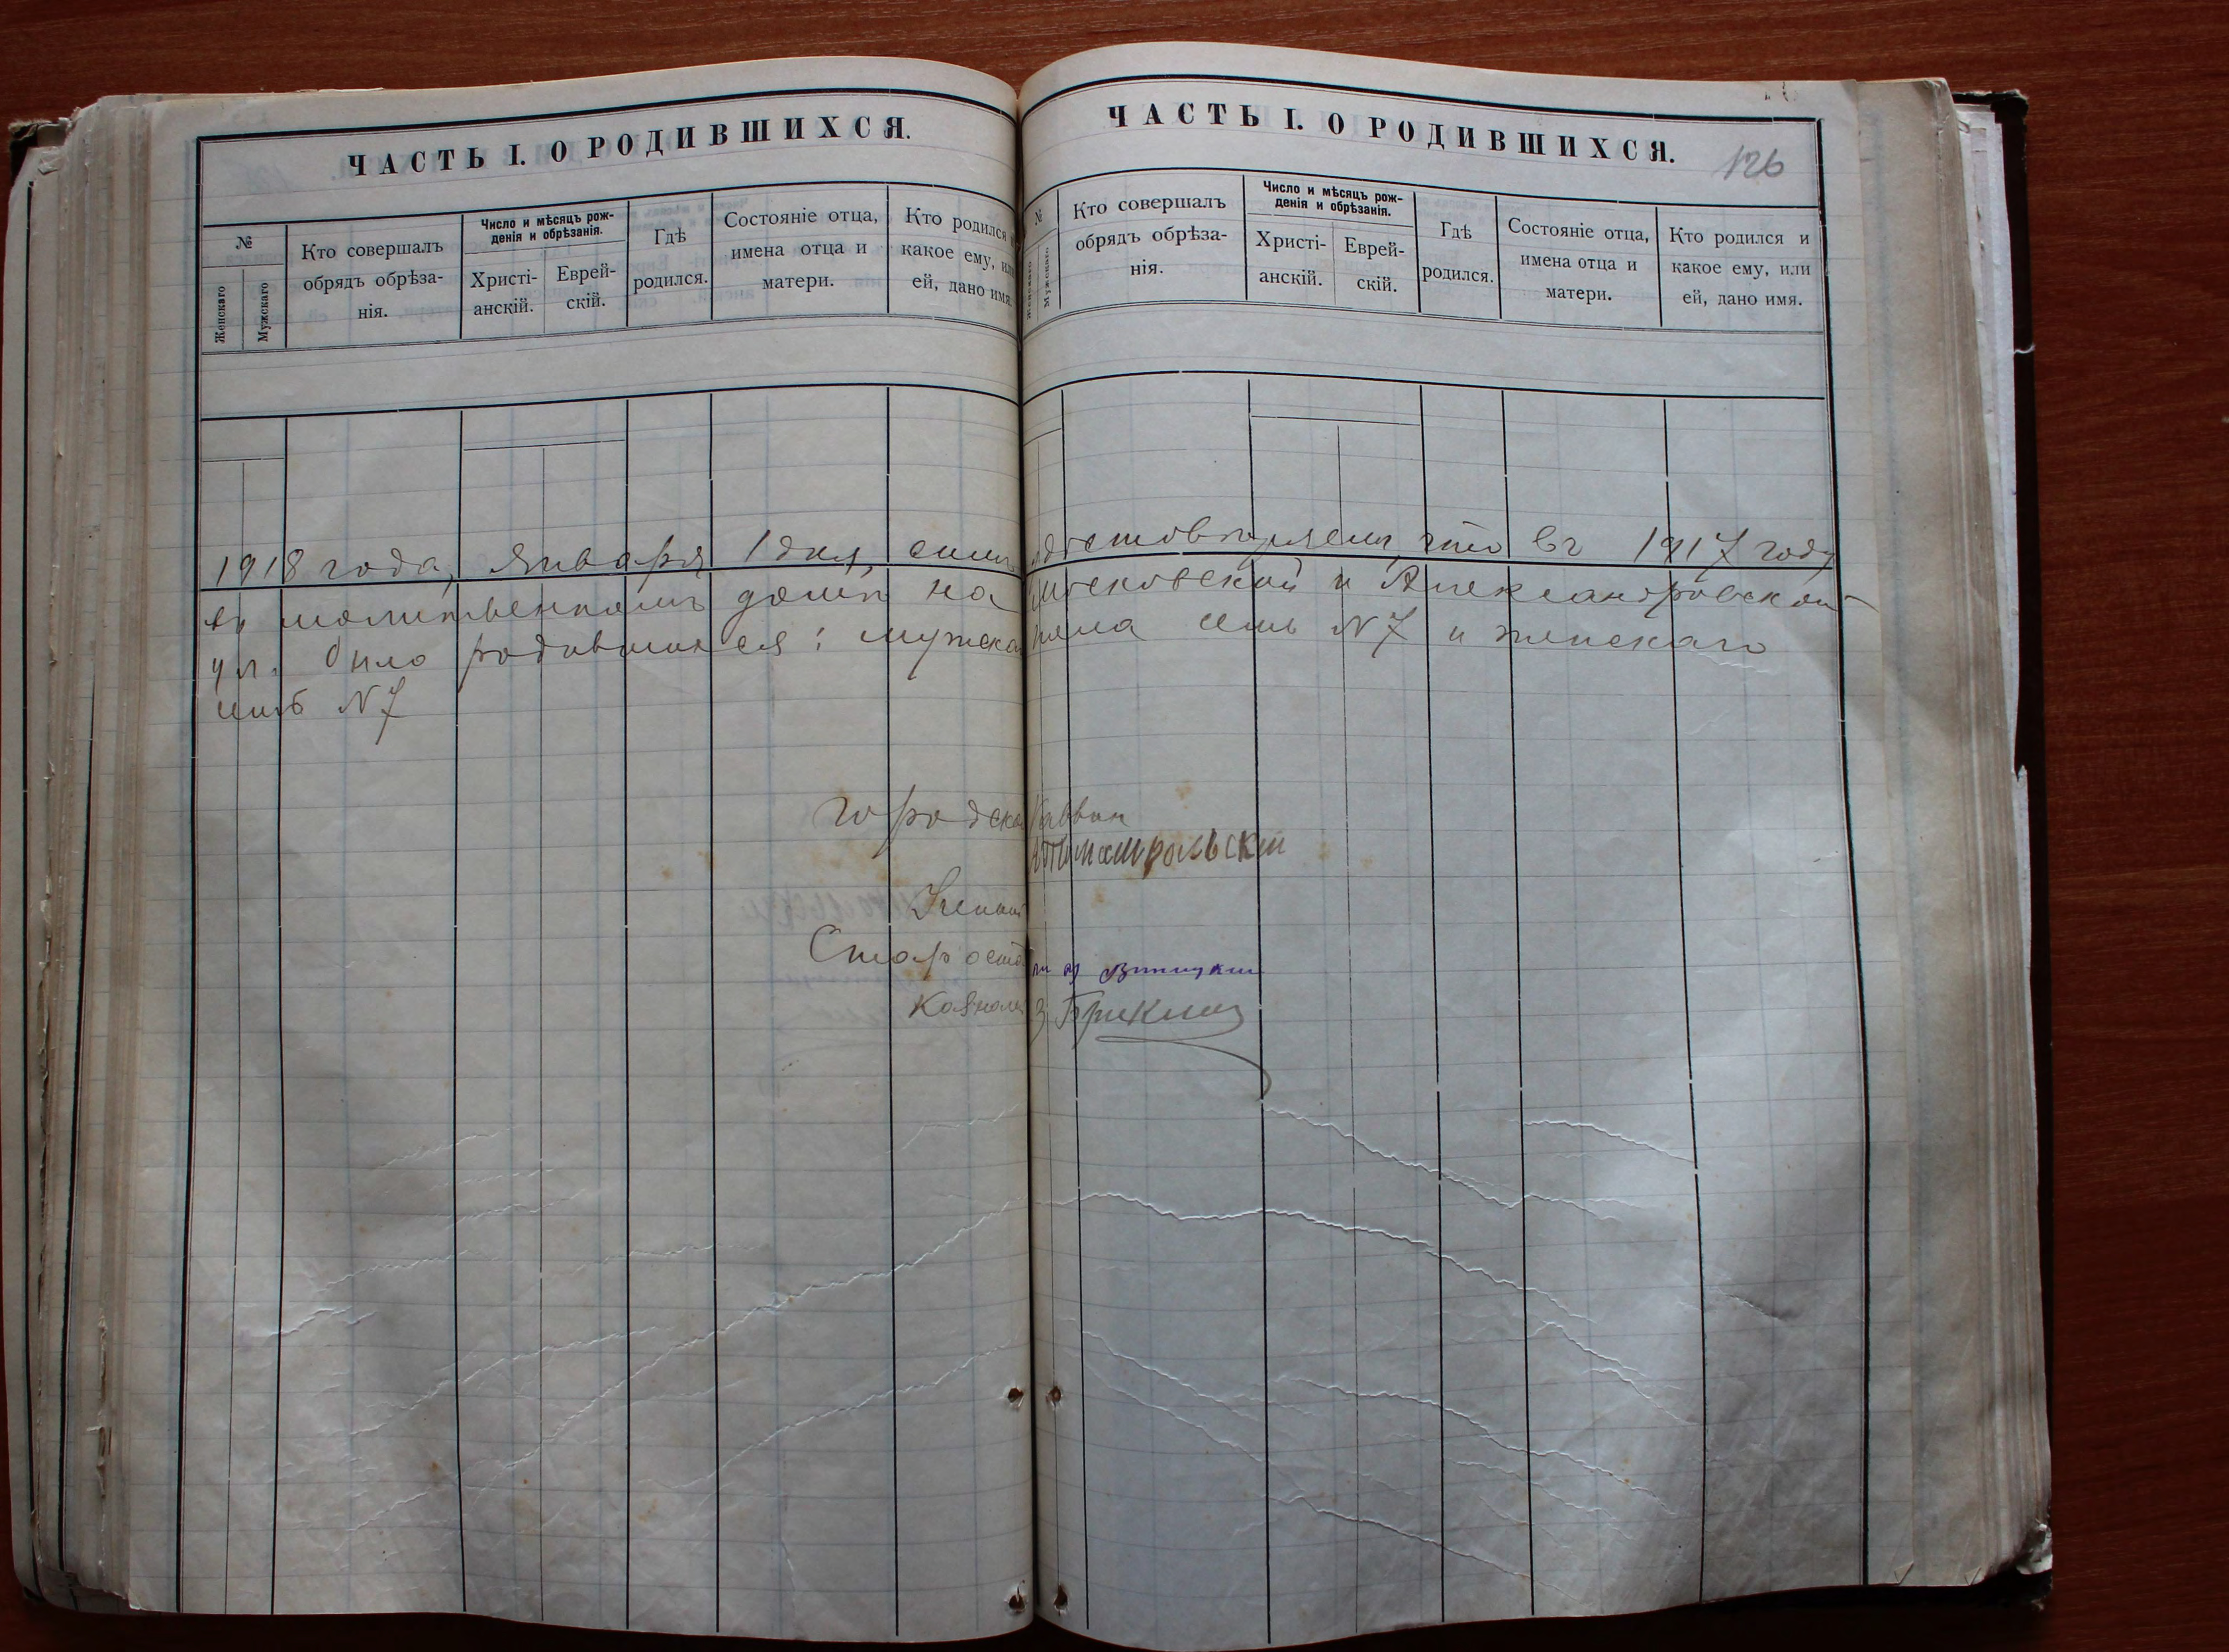 ЧАСТЬ I. О РОДИВШИХСЯ.
№
Женскаго
Мужскаго
Кто совершалъ
обрядъ обрѣза-
нія.
Число и мѣсяцъ рож-
денія и обрѣзанія.
Христі-
анскій.
Еврей-
скій.
Гдѣ
родился.
Состояніе отца,
имена отца и
матери.
Кто родился и
какое ему, или
ей, дано имя.
ЧАСТЬ I. О РОДИВШИХСЯ.
126
№
Женскаго
Мужскаго
Кто совершалъ
обрядъ обрѣза-
нія.
Число и мѣсяцъ рож-
денія и обрѣзанія.
Христі-
анскій.
Еврей-
скій.
Гдѣ
родился.
Состояніе отца,
имена отца и
матери.
Кто родился и
какое ему, или
ей, дано имя.
1918 года, Января 1 дня, симъ удостовѣряемъ, что въ 1917 году
въ молитвенномъ домѣ на Московской и Александровской
ул. было родившихся: мужска пола семь N7 и женскаго
семь N7
Городской Раввинъ
Ученый
Староста
Казначей З Брикинъ